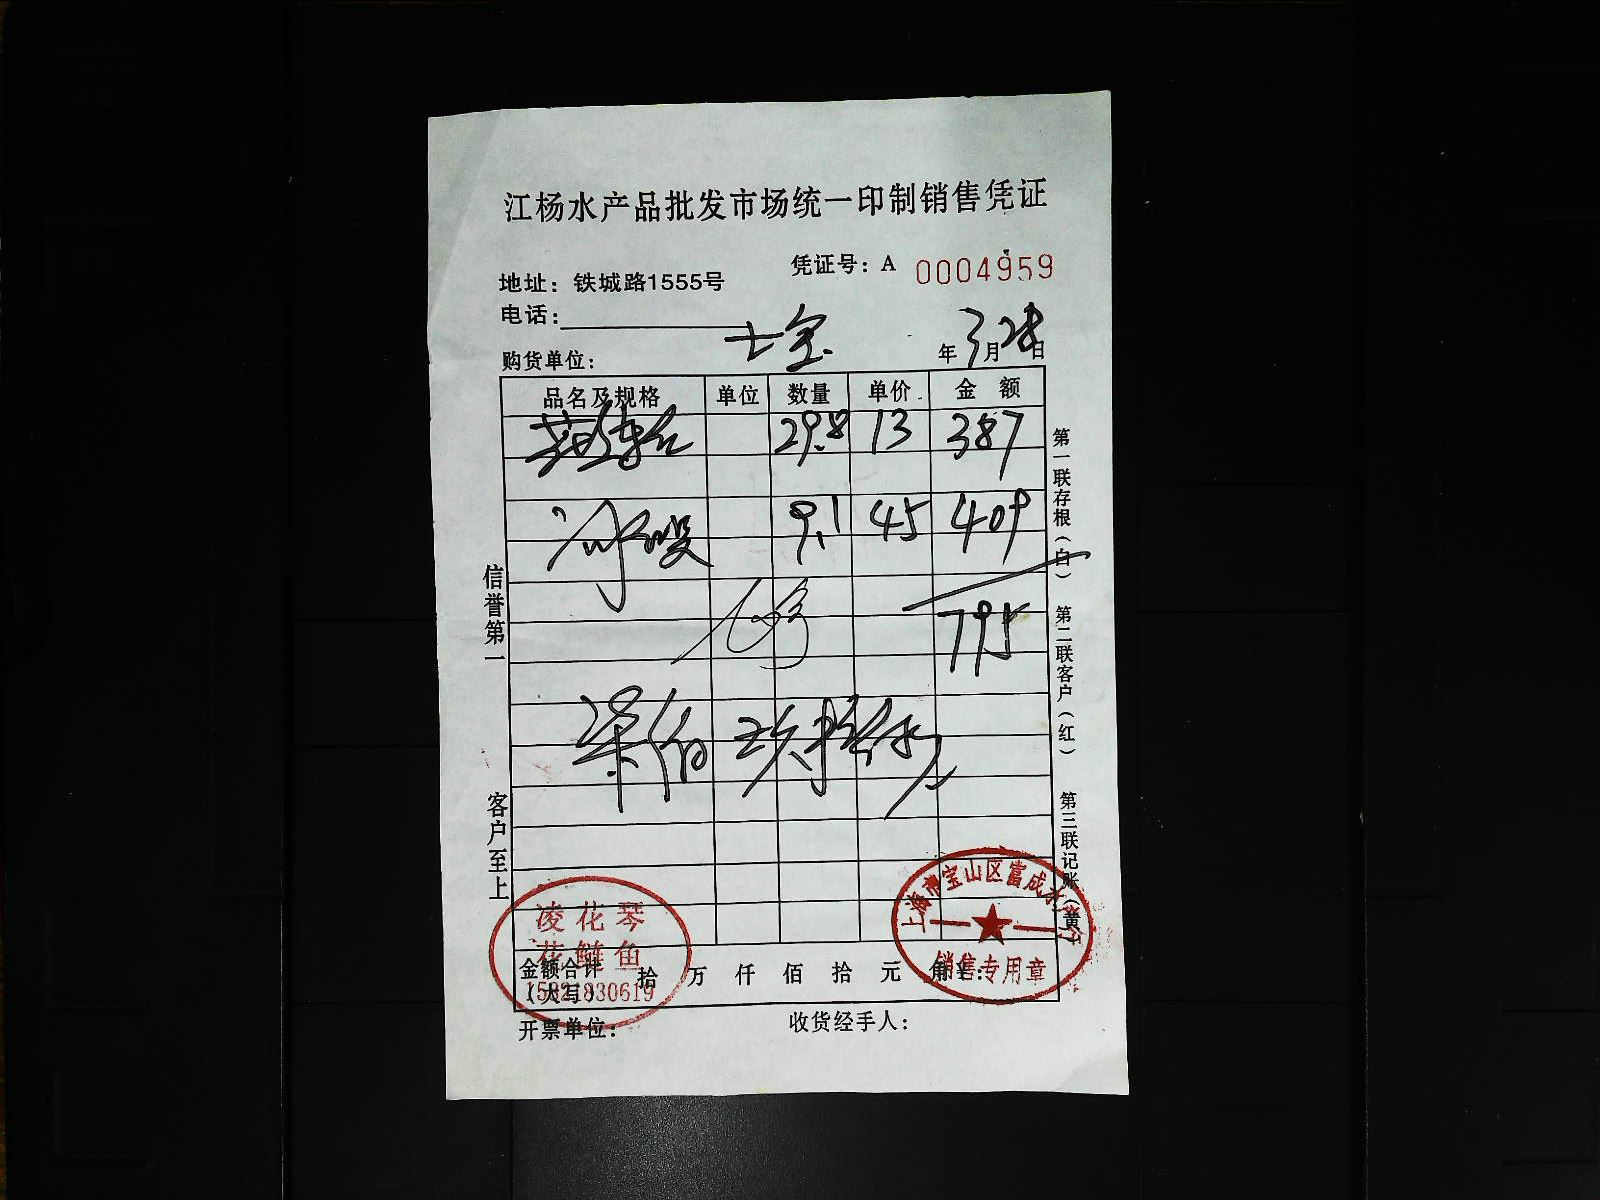 江杨水产品批发市场统一印制销售凭证
凭证号：A 0004959
地址：铁城路1555号
电话：
购货单位： 七宝 年3月28日
品名及规格 单位 数量 单价 金额
29.8 13 387
9.1 45 409
795
柒佰玖拾伍
金额合计（大写） 拾 万 仟 佰 拾 元 角
开票单位： 收货经手人：
信誉第一 客户至上
第一联存根（白） 第二联客户（红） 第三联记账（黄）
凌花琴
花鲢鱼
15821830619
上海市宝山区富成水产行
销售专用章